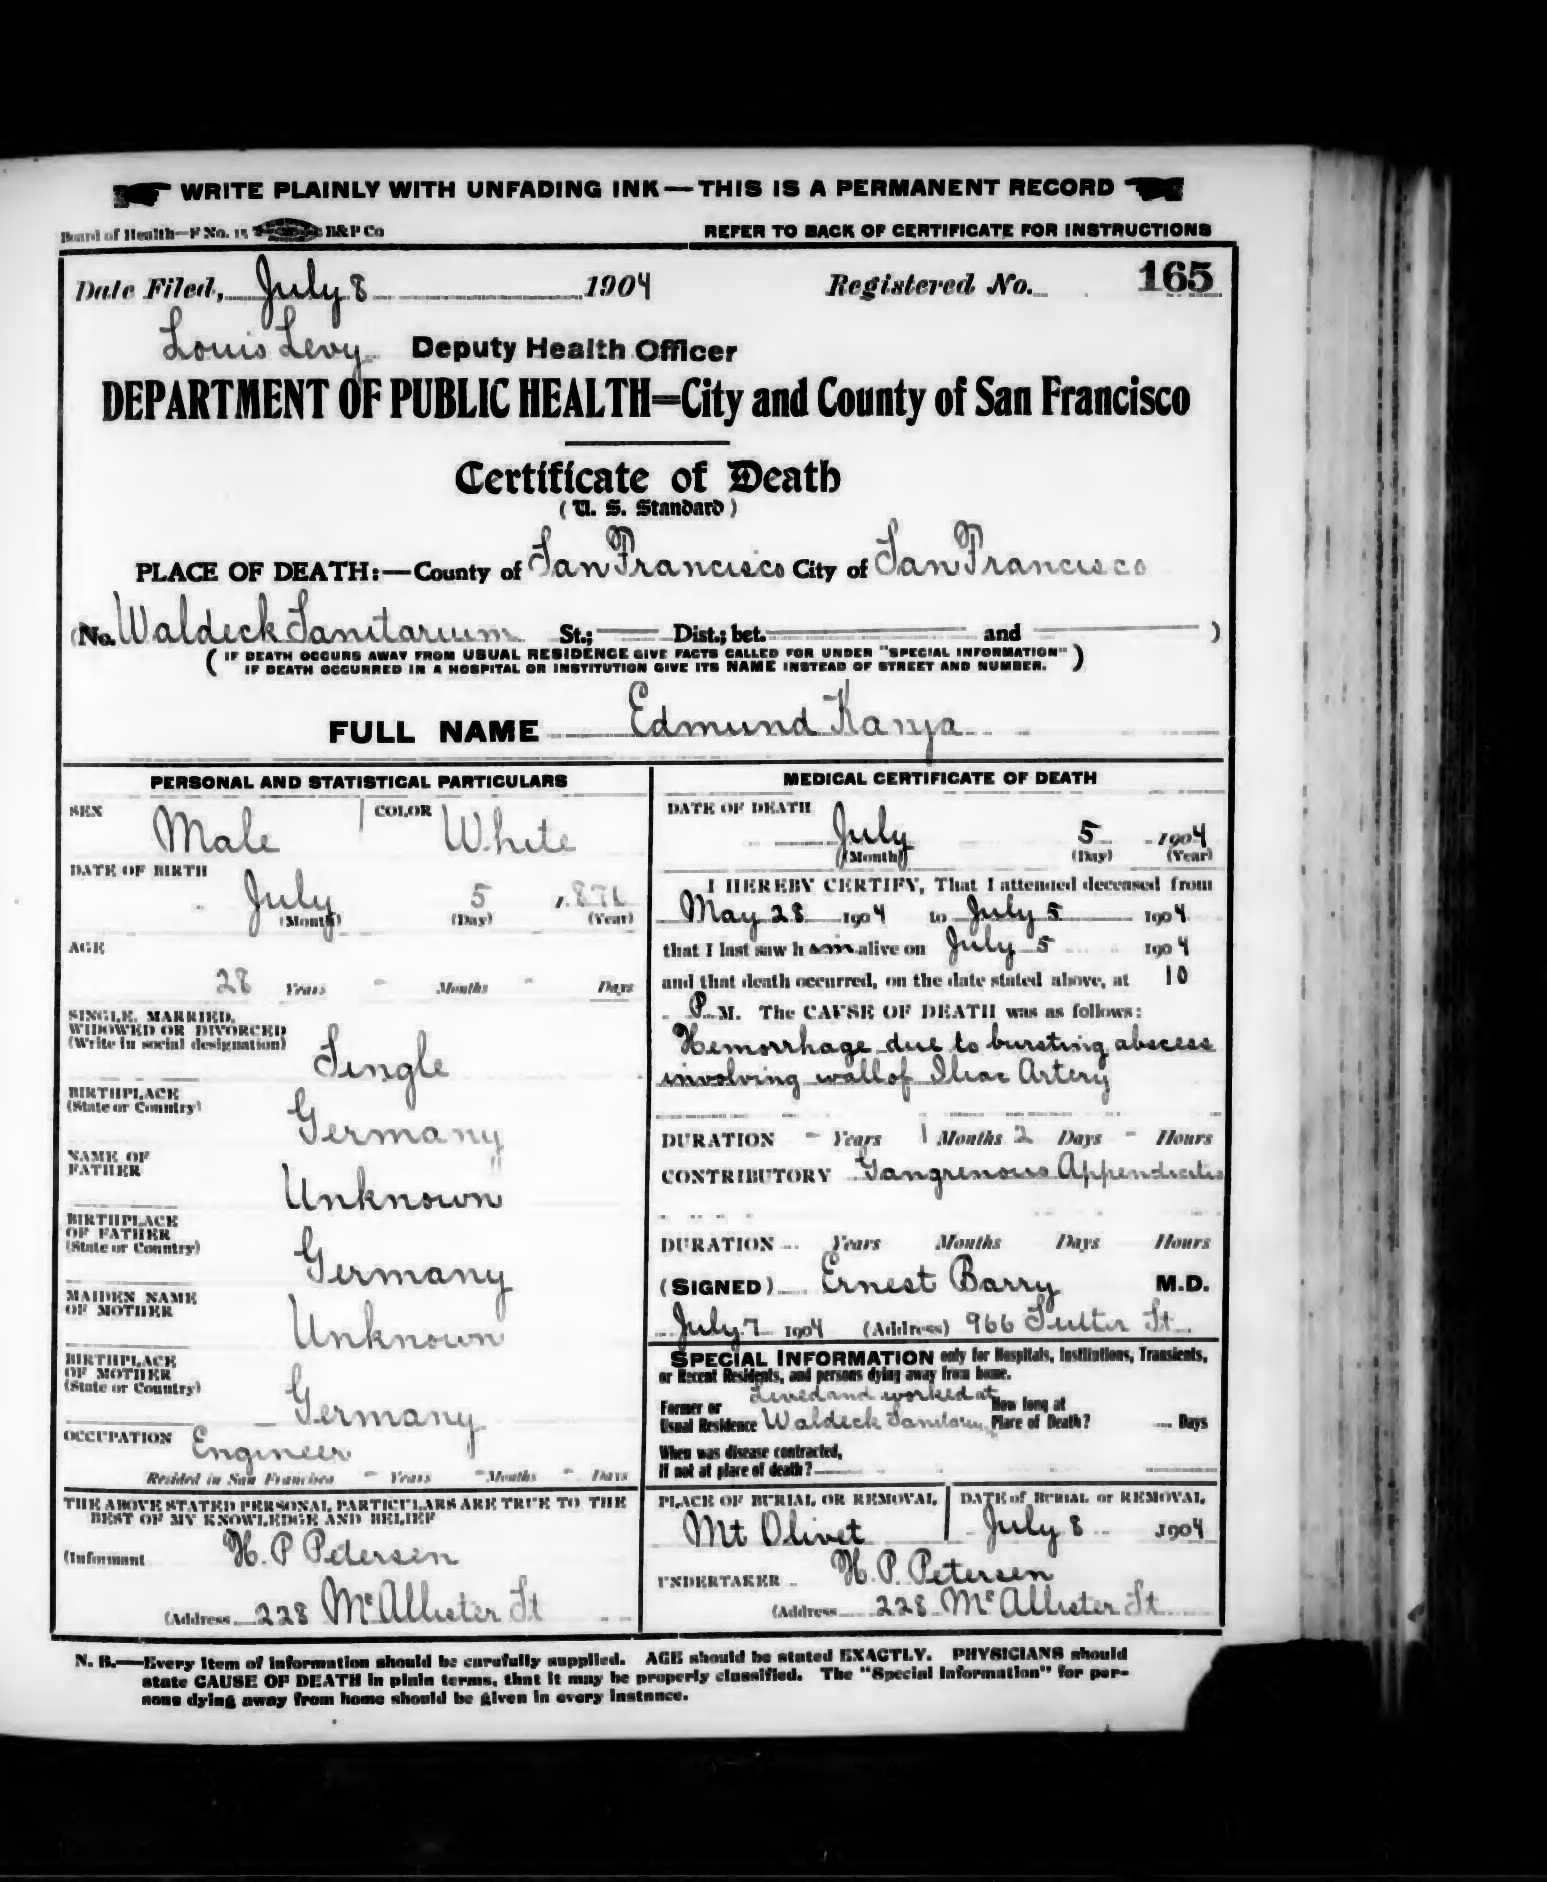 WRITE PLAINLY WITH UNFADING INK—THIS IS A PERMANENT RECORD
Board of Health—F No. 15 B&P Co
REFER TO BACK OF CERTIFICATE FOR INSTRUCTIONS
Date Filed, July 8 1904 Registered No. 165
Louis Levy Deputy Health Officer
DEPARTMENT OF PUBLIC HEALTH=City and County of San Francisco
Certificate of Death
(U. S. Standard)
PLACE OF DEATH:—County of San Francisco City of San Francisco
(No. Waldeck Sanitarium St.; Dist.; bet. and )
(IF DEATH OCCURS AWAY FROM USUAL RESIDENCE GIVE FACTS CALLED FOR UNDER "SPECIAL INFORMATION"
IF DEATH OCCURRED IN A HOSPITAL OR INSTITUTION GIVE ITS NAME INSTEAD OF STREET AND NUMBER.)
FULL NAME Edmund Kanja
PERSONAL AND STATISTICAL PARTICULARS
SEX Male COLOR White
DATE OF BIRTH
July 5 1876
(Month) (Day) (Year)
AGE
28 Years - Months - Days
SINGLE, MARRIED,
WIDOWED OR DIVORCED
(Write in social designation) Single
BIRTHPLACE
(State or Country) Germany
NAME OF
FATHER Unknown
BIRTHPLACE
OF FATHER
(State or Country) Germany
MAIDEN NAME
OF MOTHER Unknown
BIRTHPLACE
OF MOTHER
(State or Country) Germany
OCCUPATION Engineer
Resided in San Francisco - Years - Months - Days
THE ABOVE STATED PERSONAL PARTICULARS ARE TRUE TO THE
BEST OF MY KNOWLEDGE AND BELIEF
(Informant H. P. Petersen
(Address 228 McAllister St
MEDICAL CERTIFICATE OF DEATH
DATE OF DEATH
July 5 1904
(Month) (Day) (Year)
I HEREBY CERTIFY, That I attended deceased from
May 28 1904 to July 5 1904
that I last saw him alive on July 5 1904
and that death occurred, on the date stated above, at 10
P. M. The CAUSE OF DEATH was as follows:
Hemorrhage due to bursting abscess
involving wall of Iliac Artery
DURATION - Years 1 Months 2 Days - Hours
CONTRIBUTORY Gangrenous Appendicitis
DURATION Years Months Days Hours
(SIGNED) Ernest Barry M.D.
July 7 1904 (Address) 966 Sutter St
SPECIAL INFORMATION only for Hospitals, Institutions, Transients,
or Recent Residents, and persons dying away from home.
Lived and worked at
Former or How long at
Usual Residence Waldeck Sanitarium Place of Death? Days
When was disease contracted,
If not at place of death?
PLACE OF BURIAL OR REMOVAL DATE of BURIAL or REMOVAL
Mt Olivet July 8 1904
UNDERTAKER H. P. Petersen
(Address 228 McAllister St
N. B.—Every item of information should be carefully supplied. AGE should be stated EXACTLY. PHYSICIANS should
state CAUSE OF DEATH in plain terms, that it may be properly classified. The "Special Information" for per-
sons dying away from home should be given in every instance.